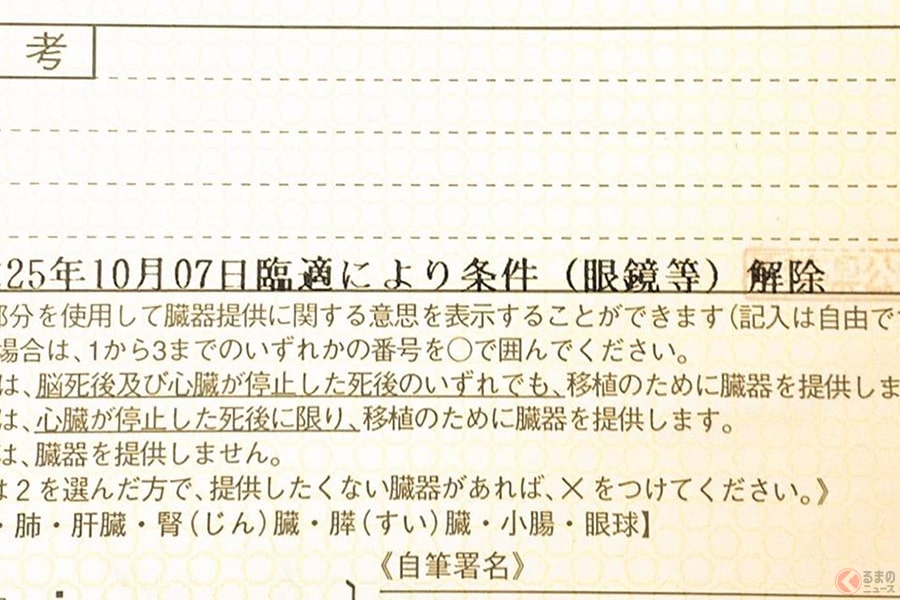 考
25年10月07日臨適により条件（眼鏡等）解除
部分を使用して臓器提供に関する意思を表示することができます(記入は自由で
場合は、1から3までのいずれかの番号を○で囲んでください。
は、脳死後及び心臓が停止した死後のいずれでも、移植のために臓器を提供しま
は、心臓が停止した死後に限り、移植のために臓器を提供します。
は、臓器を提供しません。
は2を選んだ方で、提供したくない臓器があれば、×をつけてください。》
・肺・肝臓・腎(じん)臓・膵(すい)臓・小腸・眼球】
《自筆署名》
くるまのニュース